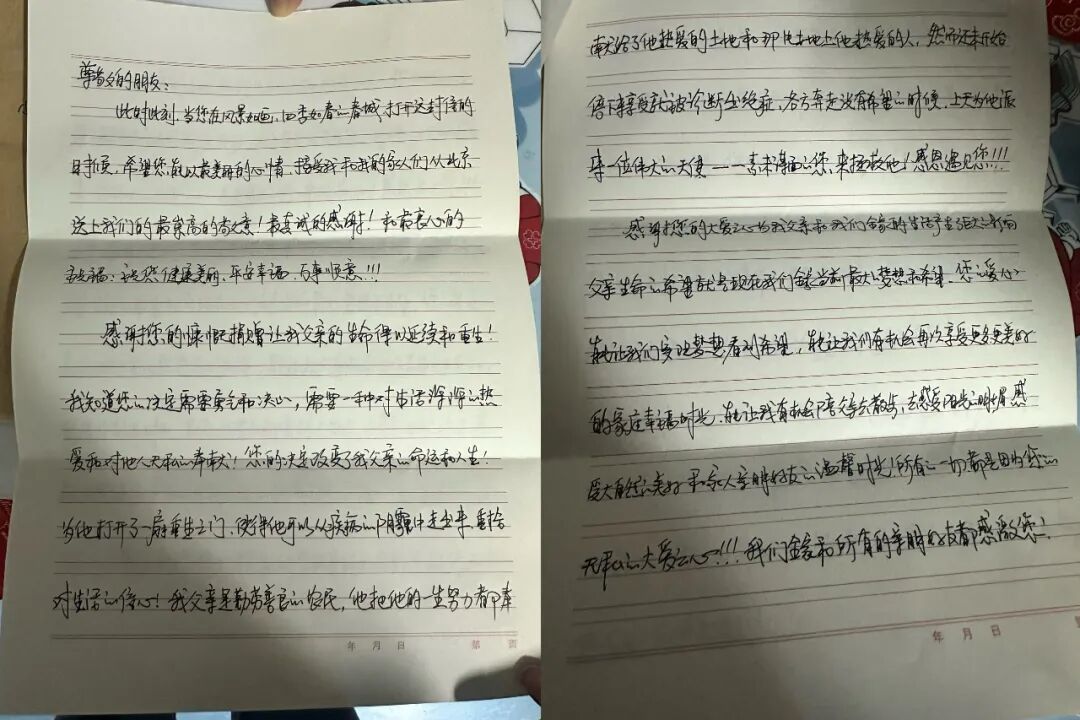 尊敬的朋友:
此时此刻,当您在风景如画,四季如春的春城,打开这封信的
时候,希望您能以最美丽的心情,接受我和我的家人们从北京
送上我们的最崇高的敬意!最真诚的感谢!和最衷心的
祝福,祝您健康美丽,平安幸福,万事顺意!!!
感谢您的慷慨捐赠让我父亲的生命得以延续和重生!
我知道您的决定需要勇气和决心,需要一种对生活深深的热
爱和对他人无私的奉献!您的决定改变了我父亲的命运和人生!
为他打开了一扇重生之门,使得他可以从疾病的阴霾中走出来,重拾
对生活的信心!我父亲是勤劳善良的农民,他把他的一生努力都奉
年 月 日 第 页
献给了他热爱的土地和那片土地上他热爱的人,然而还未开始
停下来享受就被诊断出绝症,各方奔走没有希望的时候,上天为他派
来一位伟大的天使——素未谋面的您,来拯救他!感恩遇见您!!!
感谢您的大爱之心为我父亲和我们全家的生活产生强大的影响
父亲生命的希望就是现在我们全家当前最大的梦想和希望,您的爱心
能让我们实现梦想看到希望,能让我们有机会再次享受更多更美好
的家庭幸福时光,能让我有机会陪父亲去散步,去感受阳光的明媚,感
受大自然的美好和家人亲朋好友的温馨时光!所有的一切都是因为您的
无私的大爱之心!!!我们全家和所有的亲朋好友都感激您!
年 月 日